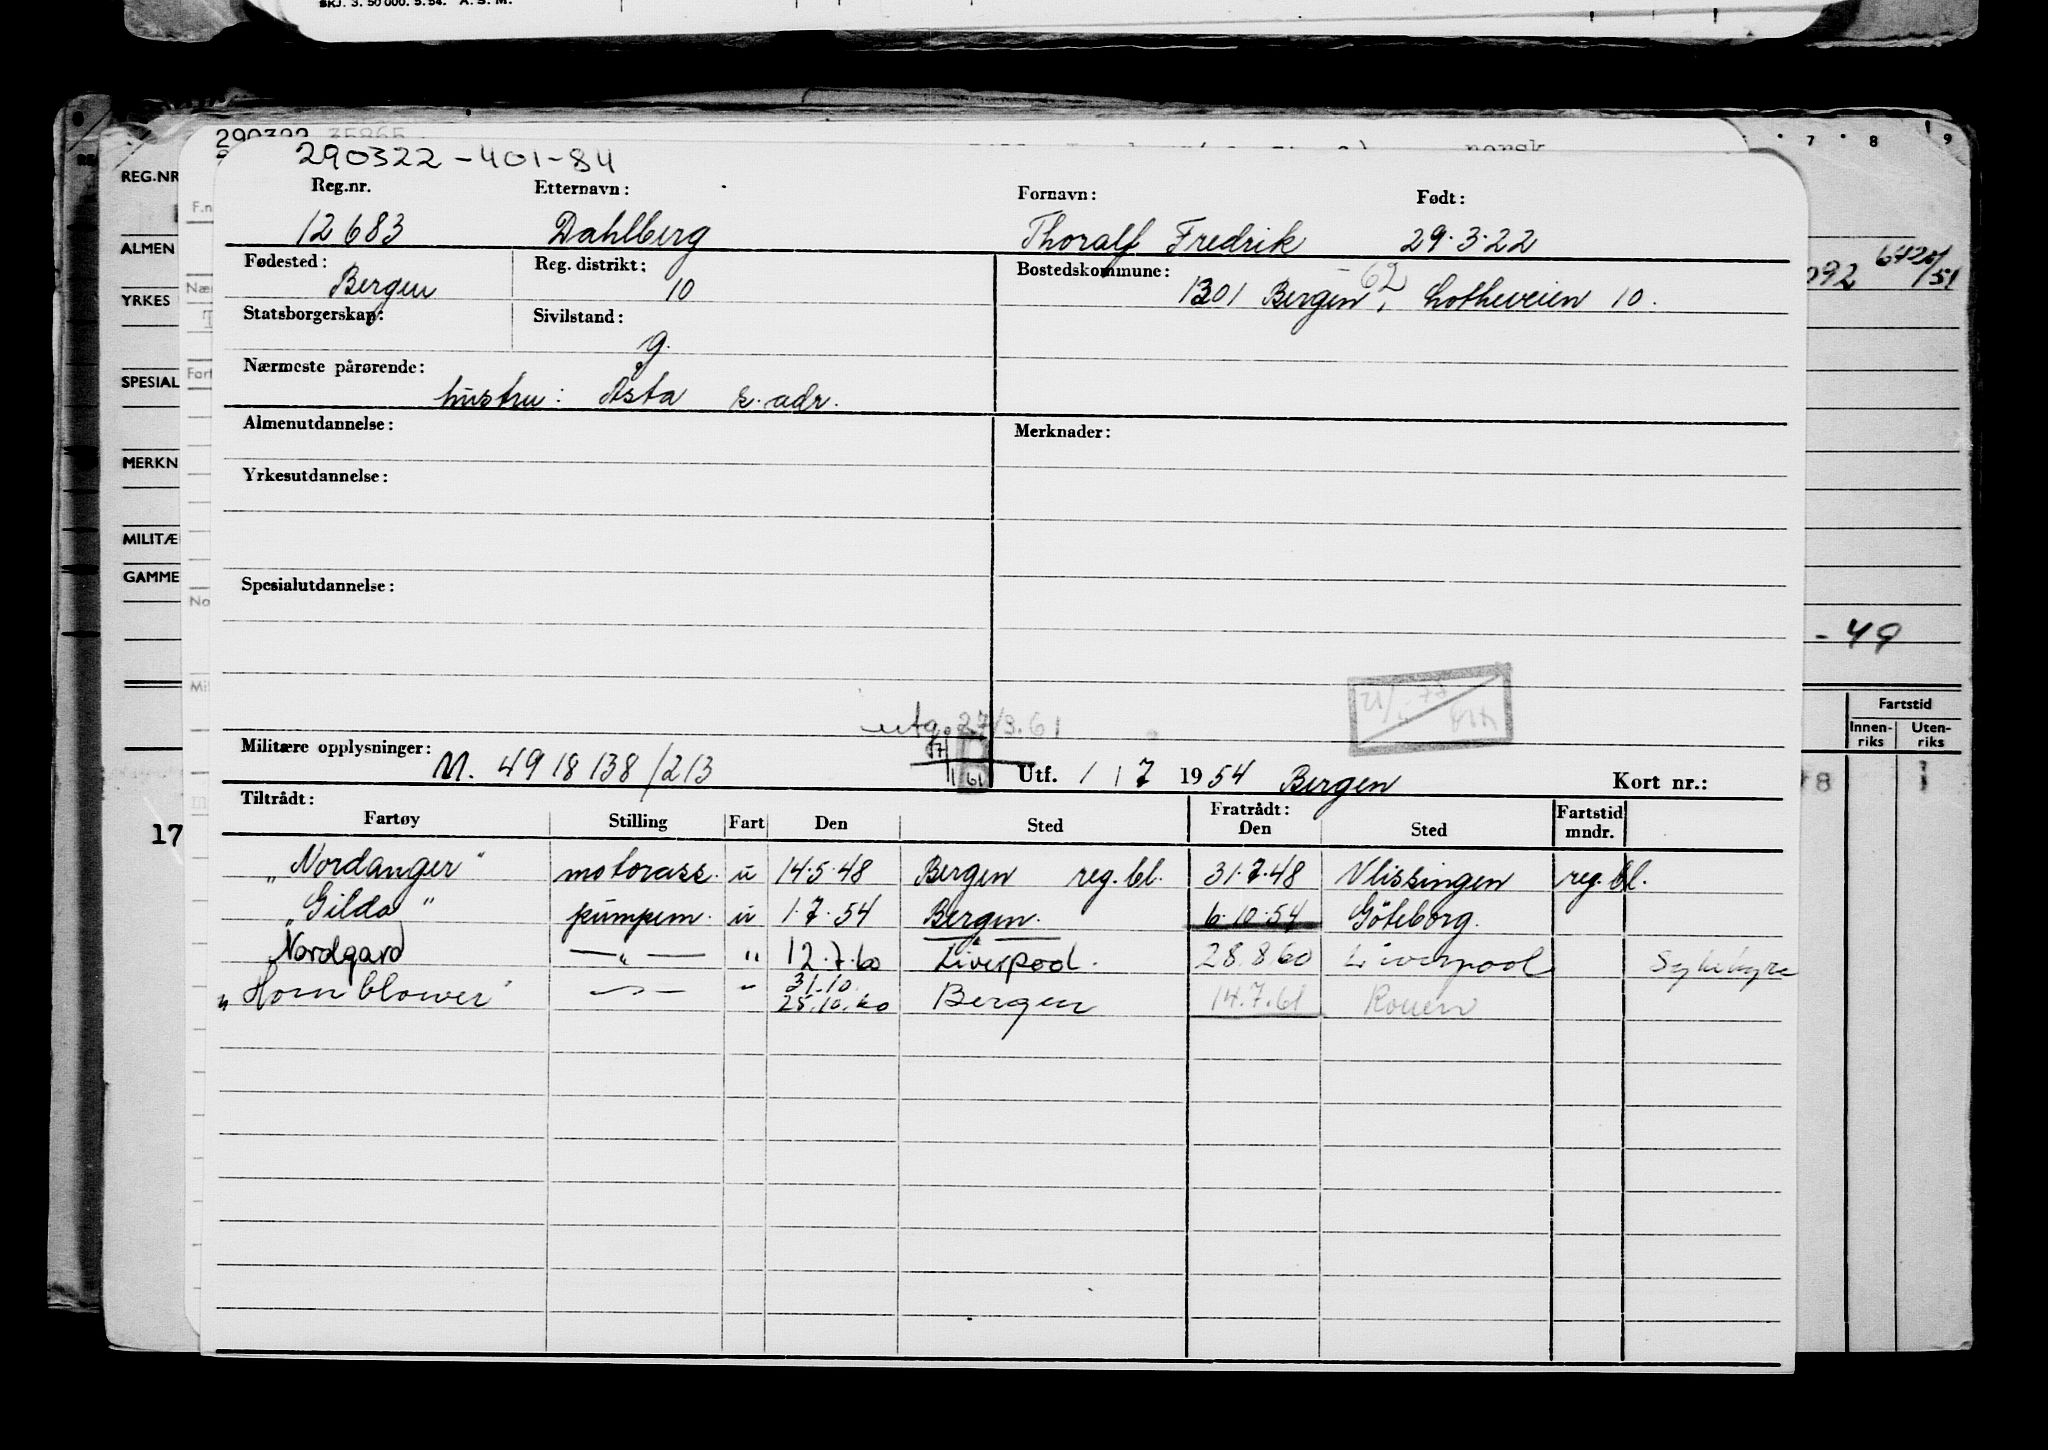 SKJ. 3. 50 000. 5.54. A. S. M.
290322 35865
norsk
290322-401-84
7 8 9
REG.NR
Reg.nr. Etternavn: Fornavn: Født:
12683 Dahlberg Thoralf Fredrik 29.3.22
ALMEN
Fødested: Reg. distrikt: Bostedskommune:
Bergen 10 1301 Bergen, Lotheveien 10.
62
092 /51
YRKES
Statsborgerskap: Sivilstand:
g.
Nærmeste pårørende:
SPESIAL
hustru: Åsta s. adr.
Almenutdannelse: Merknader:
MERKN
Yrkesutdannelse:
MILITÆ
GAMME
Spesialutdannelse:
- 49
utg. 27/3.61
Militære opplysninger: M. 4918138/213
Utf. 1 / 7 1954 Bergen Kort nr.:
Fartstid
Innen-riks Uten-riks
Tiltrådt: Fratrådt: Fartstid mndr.
Fartøy Stilling Fart Den Sted Den Sted
17
"Nordanger" motorass. u 14.5.48 Bergen reg. bl. 31.7.48 Vlissingen reg. bl.
"Gilda" pumpem. u 1.7.54 Bergen. 6.10.54 Göteborg.
Nordgard —"— " 12.7.60 Liverpool. 28.8.60 Liverpool
31.10.
"Hornblower" —"— " 25.10.60 Bergen 14.7.61 Rouen